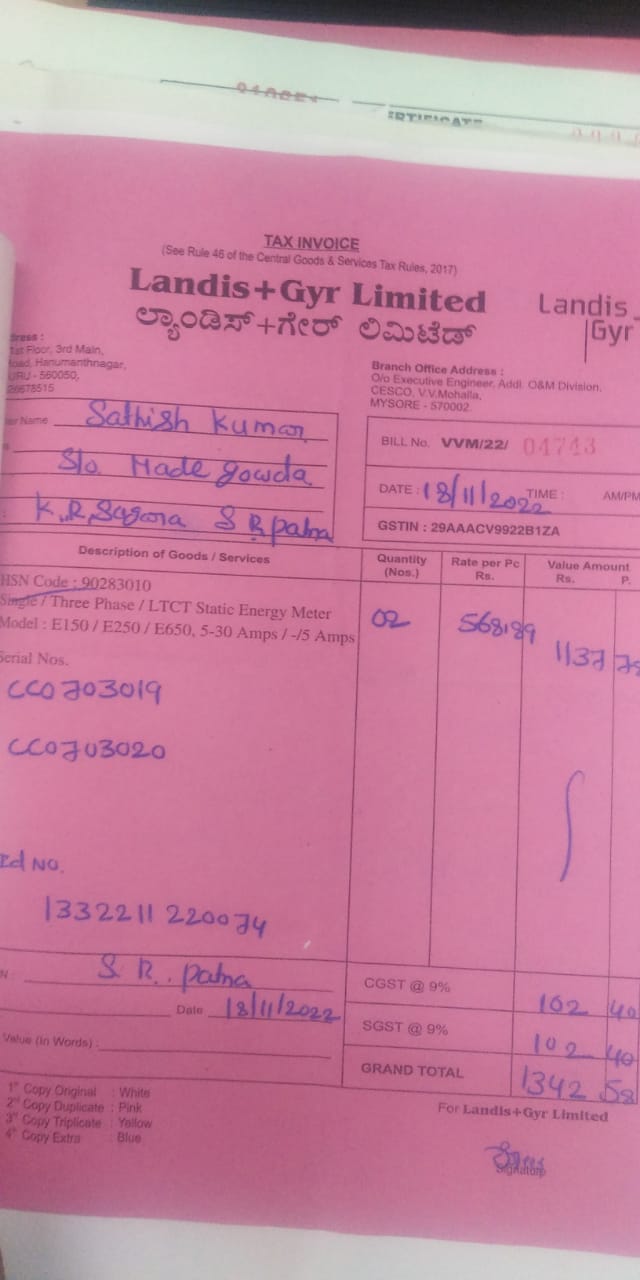 TAX INVOICE
(See Rule 46 of the Central Goods & Services Tax Rules, 2017)
Landis+Gyr Limited
ಲ್ಯಾಂಡಿಸ್+ಗೇರ್ ಲಿಮಿಟೆಡ್
Landis
Gyr
1st Floor, 3rd Main,
Hanumanthnagar,
- 560050,
26678515
Branch Office Address :
O/o Executive Engineer, Addl. O&M Division,
CESCO, V.V.Mohalla,
MYSORE - 570002.
Name Sathish Kumar
S/o. Made gowda
K.R.Sagara S R patna
BILL No. VVM/22/ 04743
DATE : 18/11/2022 TIME : AM/PM
GSTIN : 29AAACV9922B1ZA
Description of Goods / Services
Quantity (Nos.)
Rate per Pc Rs.
Value Amount Rs. P.
HSN Code : 90283010
Single / Three Phase / LTCT Static Energy Meter
Model : E150 / E250 / E650, 5-30 Amps / -/5 Amps
02 568.89 1137 78
Serial Nos.
CC0703019
CC0703020
Id No.
1332211 220074
S. R. patna
Date 18/11/2022
Value (in Words) :
CGST @ 9% 102 40
SGST @ 9% 102 40
GRAND TOTAL 1342 58
1st Copy Original : White
2nd Copy Duplicate : Pink
3rd Copy Triplicate : Yellow
4th Copy Extra : Blue
For Landis+Gyr Limited
Signatory